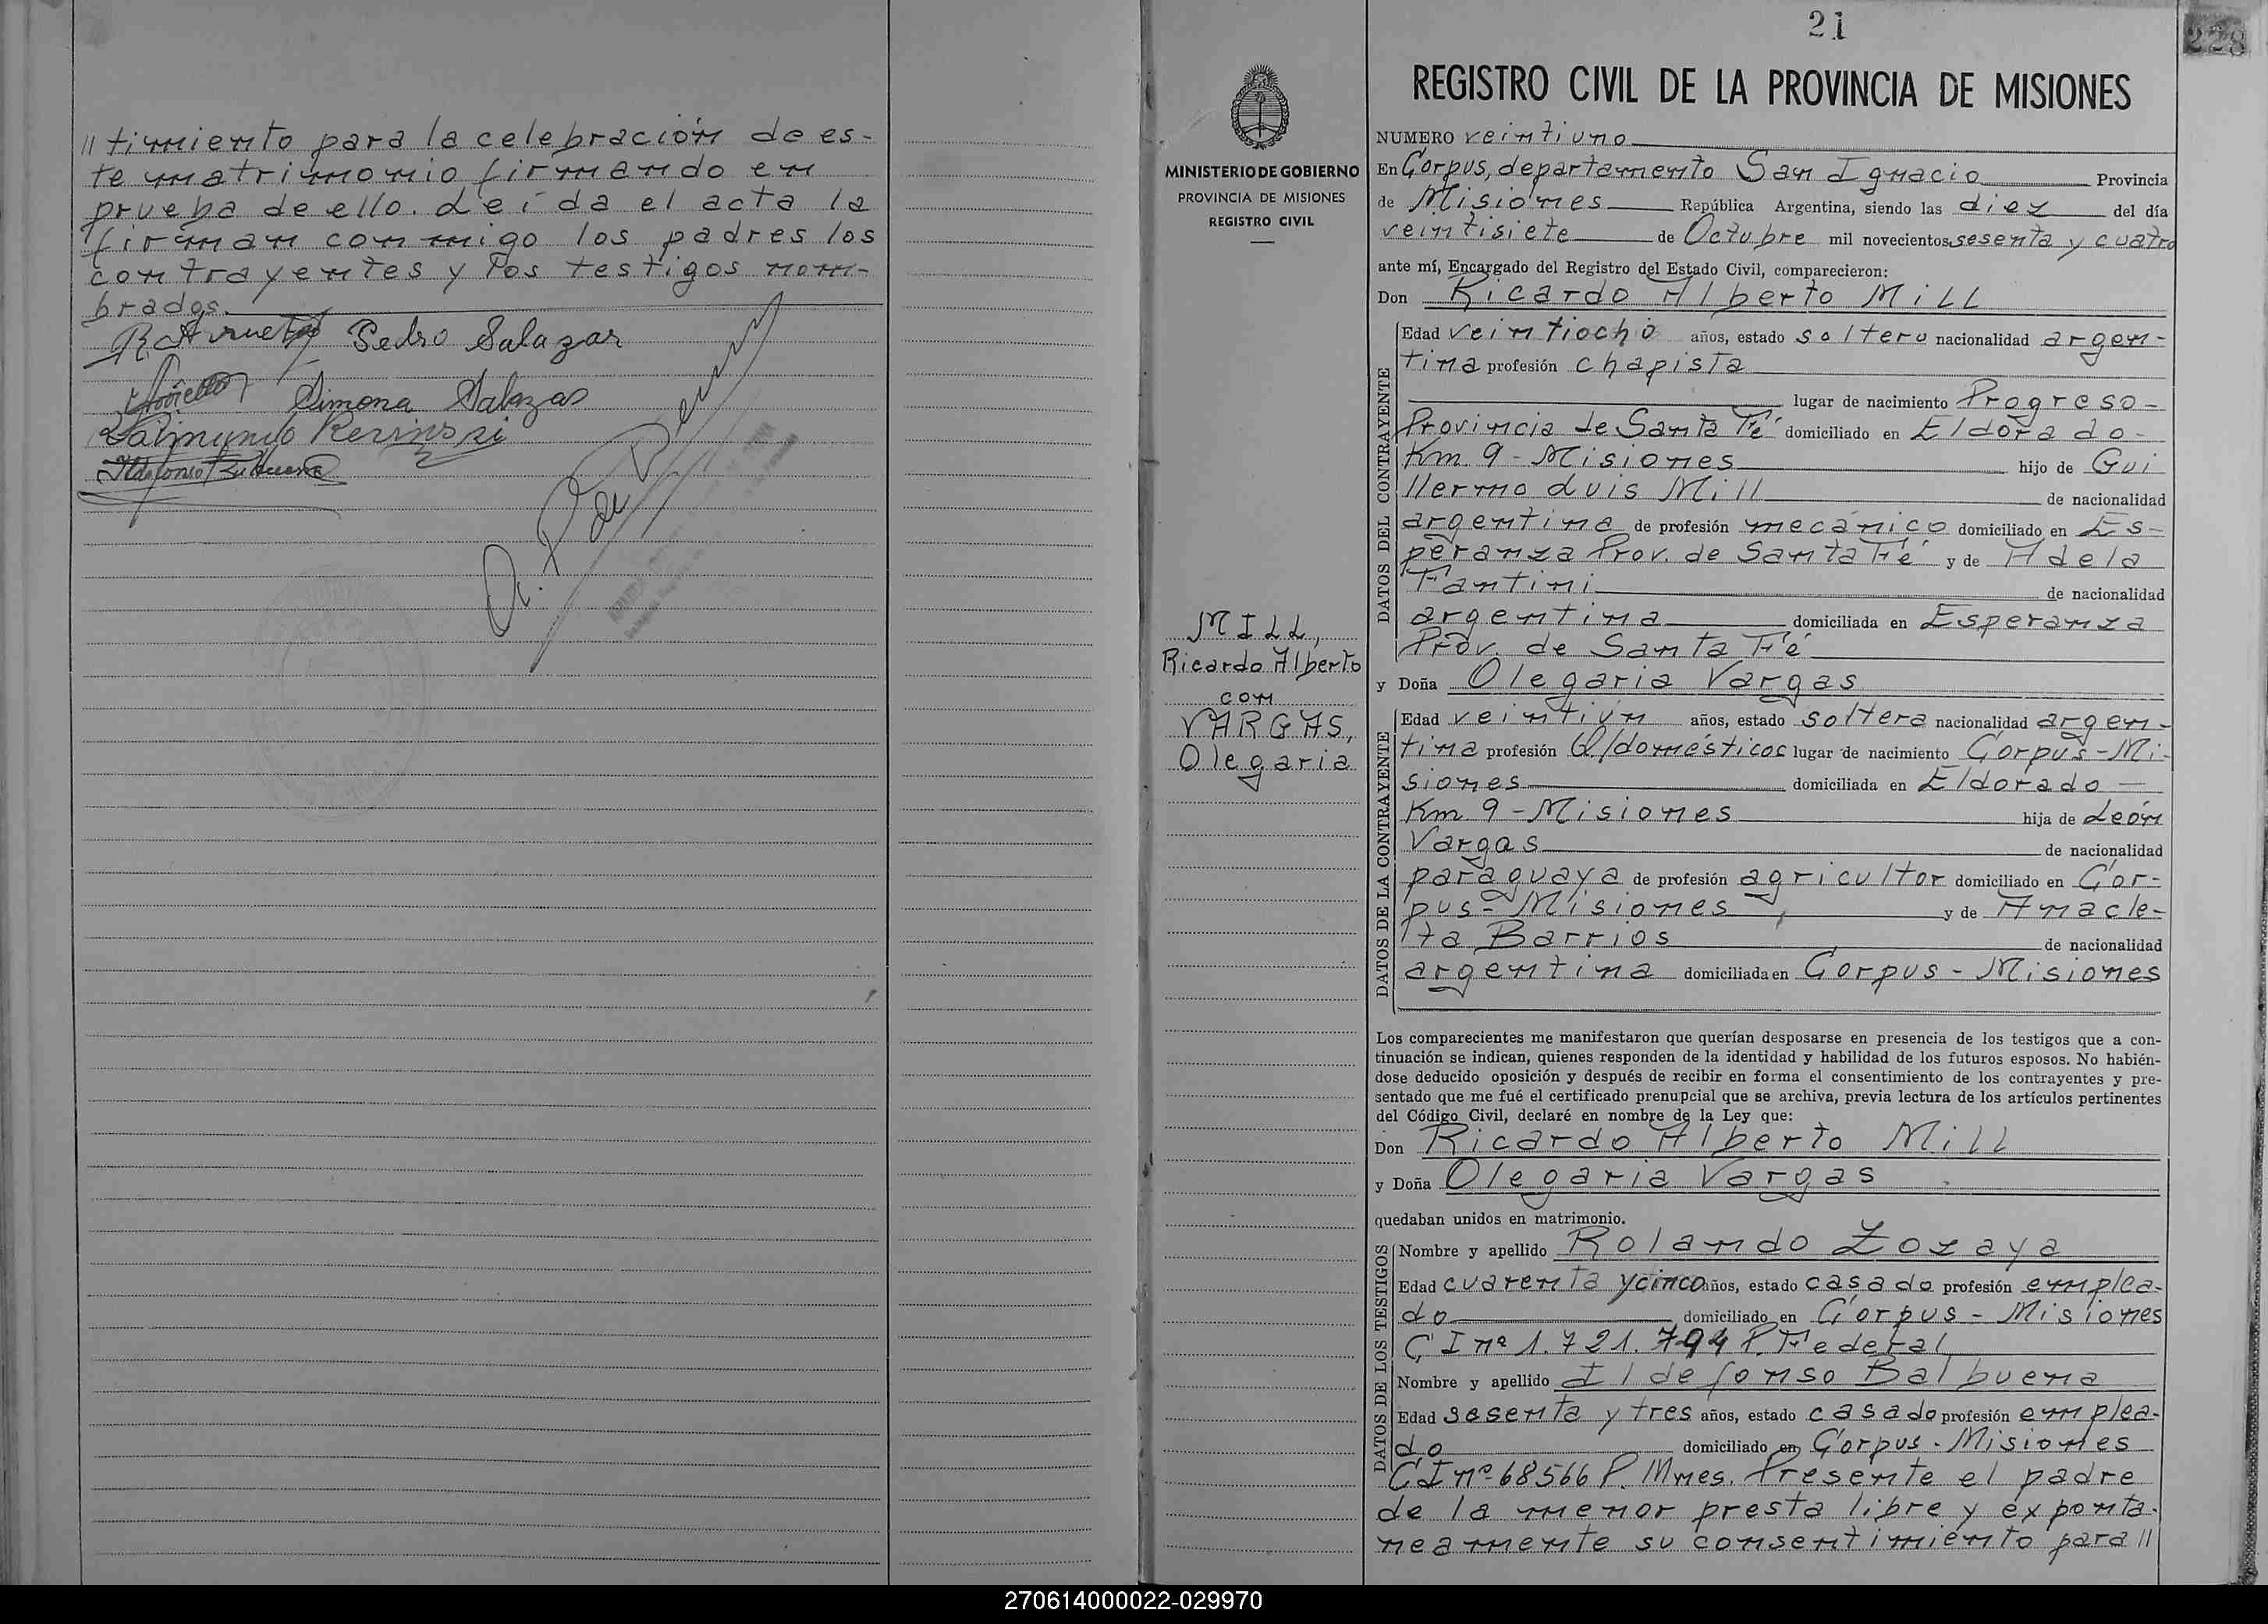 // timiento para la celebración de es-
te matrimonio firmando en
prueba de ello. Leída el acta la
firman conmigo los padres los
contrayentes y los testigos nom-
brados.
Pedro Salazar
Simona Salazar
Ildefonso Balbuena
21
228
REGISTRO CIVIL DE LA PROVINCIA DE MISIONES
MINISTERIO DE GOBIERNO
PROVINCIA DE MISIONES
REGISTRO CIVIL
MILL,
Ricardo Alberto
con
VARGAS,
Olegaria
NUMERO veintiuno
En Corpus, departamento San Ignacio Provincia
de Misiones República Argentina, siendo las diez del día
veintisiete de Octubre mil novecientos sesenta y cuatro
ante mí, Encargado del Registro del Estado Civil, comparecieron:
Don Ricardo Alberto Mill
DATOS DEL CONTRAYENTE
Edad veintiocho años, estado soltero nacionalidad argen-
tina profesión chapista
lugar de nacimiento Progreso-
Provincia de Santa Fé domiciliado en Eldorado-
Km. 9 - Misiones hijo de Gui
llermo Luis Mill de nacionalidad
argentina de profesión mecánico domiciliado en Es-
peranza Prov. de Santa Fé y de Adela
Fantini de nacionalidad
argentina domiciliada en Esperanza
Prov. de Santa Fé
y Doña Olegaria Vargas
DATOS DE LA CONTRAYENTE
Edad veintiún años, estado soltera nacionalidad argen-
tina profesión Q/domésticos lugar de nacimiento Corpus-Mi-
siones domiciliada en Eldorado-
Km 9 - Misiones hija de León
Vargas de nacionalidad
paraguaya de profesión agricultor domiciliado en Cor-
pus - Misiones, y de Anacle-
ta Barrios de nacionalidad
argentina domiciliada en Corpus - Misiones
Los comparecientes me manifestaron que querían desposarse en presencia de los testigos que a con-
tinuación se indican, quienes responden de la identidad y habilidad de los futuros esposos. No habién-
dose deducido oposición y después de recibir en forma el consentimiento de los contrayentes y pre-
sentado que me fué el certificado prenupcial que se archiva, previa lectura de los artículos pertinentes
del Código Civil, declaré en nombre de la Ley que:
Don Ricardo Alberto Mill
y Doña Olegaria Vargas
quedaban unidos en matrimonio.
DATOS DE LOS TESTIGOS
Nombre y apellido Rolando Zozaya
Edad cuarenta y cinco años, estado casado profesión emplea-
do domiciliado en Corpus - Misiones
C I nº 1.721.794 P. Federal
Nombre y apellido Ildefonso Balbuena
Edad sesenta y tres años, estado casado profesión emplea-
do domiciliado en Corpus - Misiones
C I nº 68566 P. Mnes. Presente el padre
de la menor presta libre y exponta-
neamente su consentimiento para //
270614000022-029970